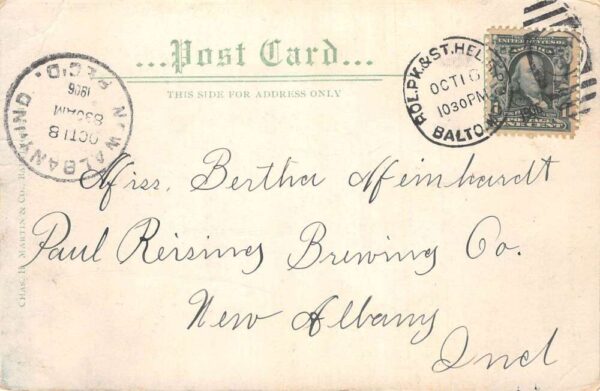 ...Post Card...
THIS SIDE FOR ADDRESS ONLY
ROL.PK.& ST. HEL
OCT 16
1030 PM
BALTO.
ONE CENT
NEW ALBANY, IND.
REC'D.
OCT 18
830 AM
1906
Miss. Bertha Meinhardt
Paul Reising Brewing Co.
New Albany
Ind
CHAS. H. MARTIN & CO.